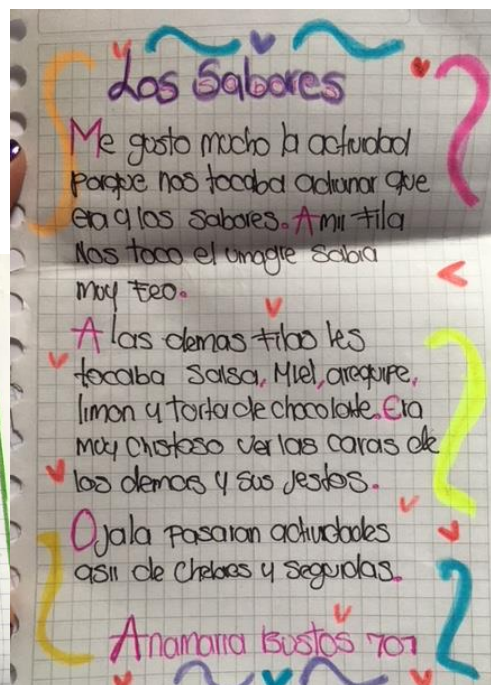 Los Sabores
Me gusto mucho la actividad
Porque nos tocaba adivinar que
era y los sabores. A mi fila
Nos toco el vinagre Sabia
muy feo.
A las demas filas les
tocaba Salsa, Miel, arequipe,
limon y torta de chocolate. Era
muy chistoso ver las caras de
los demas y sus jestos.
Ojala Pasaran actividades
asii de chebres y seguidas.
Anamaria Bustos 701